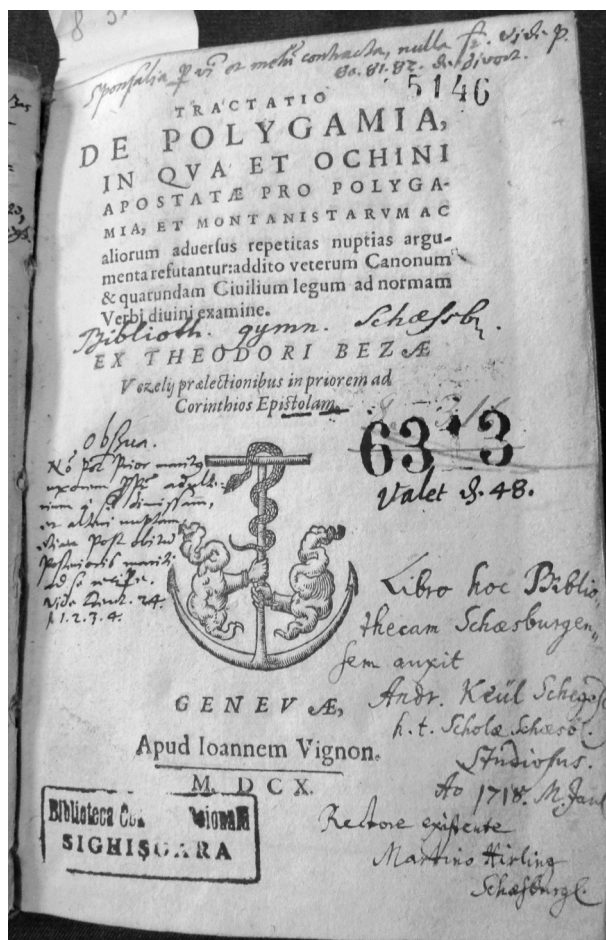 Sponsalia p vi et metu contracta, nulla st. vide p.
80. 81. 82. de divort.
5146
TRACTATIO
DE POLYGAMIA,
IN QVA ET OCHINI
APOSTATÆ PRO POLYGA-
MIA, ET MONTANISTARVM AC
aliorum aduersus repetitas nuptias argu-
menta refutantur: addito veterum Canonum
& quarundam Ciuilium legum ad normam
Verbi diuini examine.
Biblioth. gymn. Schæssb.
EX THEODORI BEZÆ
Vezelij prælectionibus in priorem ad
Corinthios Epistolam.
6313
Valet d. 48.
Observa.
No pot Prior maritus
uxorem
dimissam,
et alteri nuptam,
etiam Post obitu
Posterioris mariti
ad se
Vide Deut. 24.
1. 2. 3. 4.
Libro hoc Biblio-
thecam Schæsburgen-
sem auxit
Andr. Keül
h. t. Scholæ Schæsb.
Studiosus.
Ao 1718. M. Jan
Rectore existente
Martino Kirling
Schæsburg.
GENEVÆ,
Apud Ioannem Vignon.
M. DCX.
Biblioteca
SIGHIȘOARA